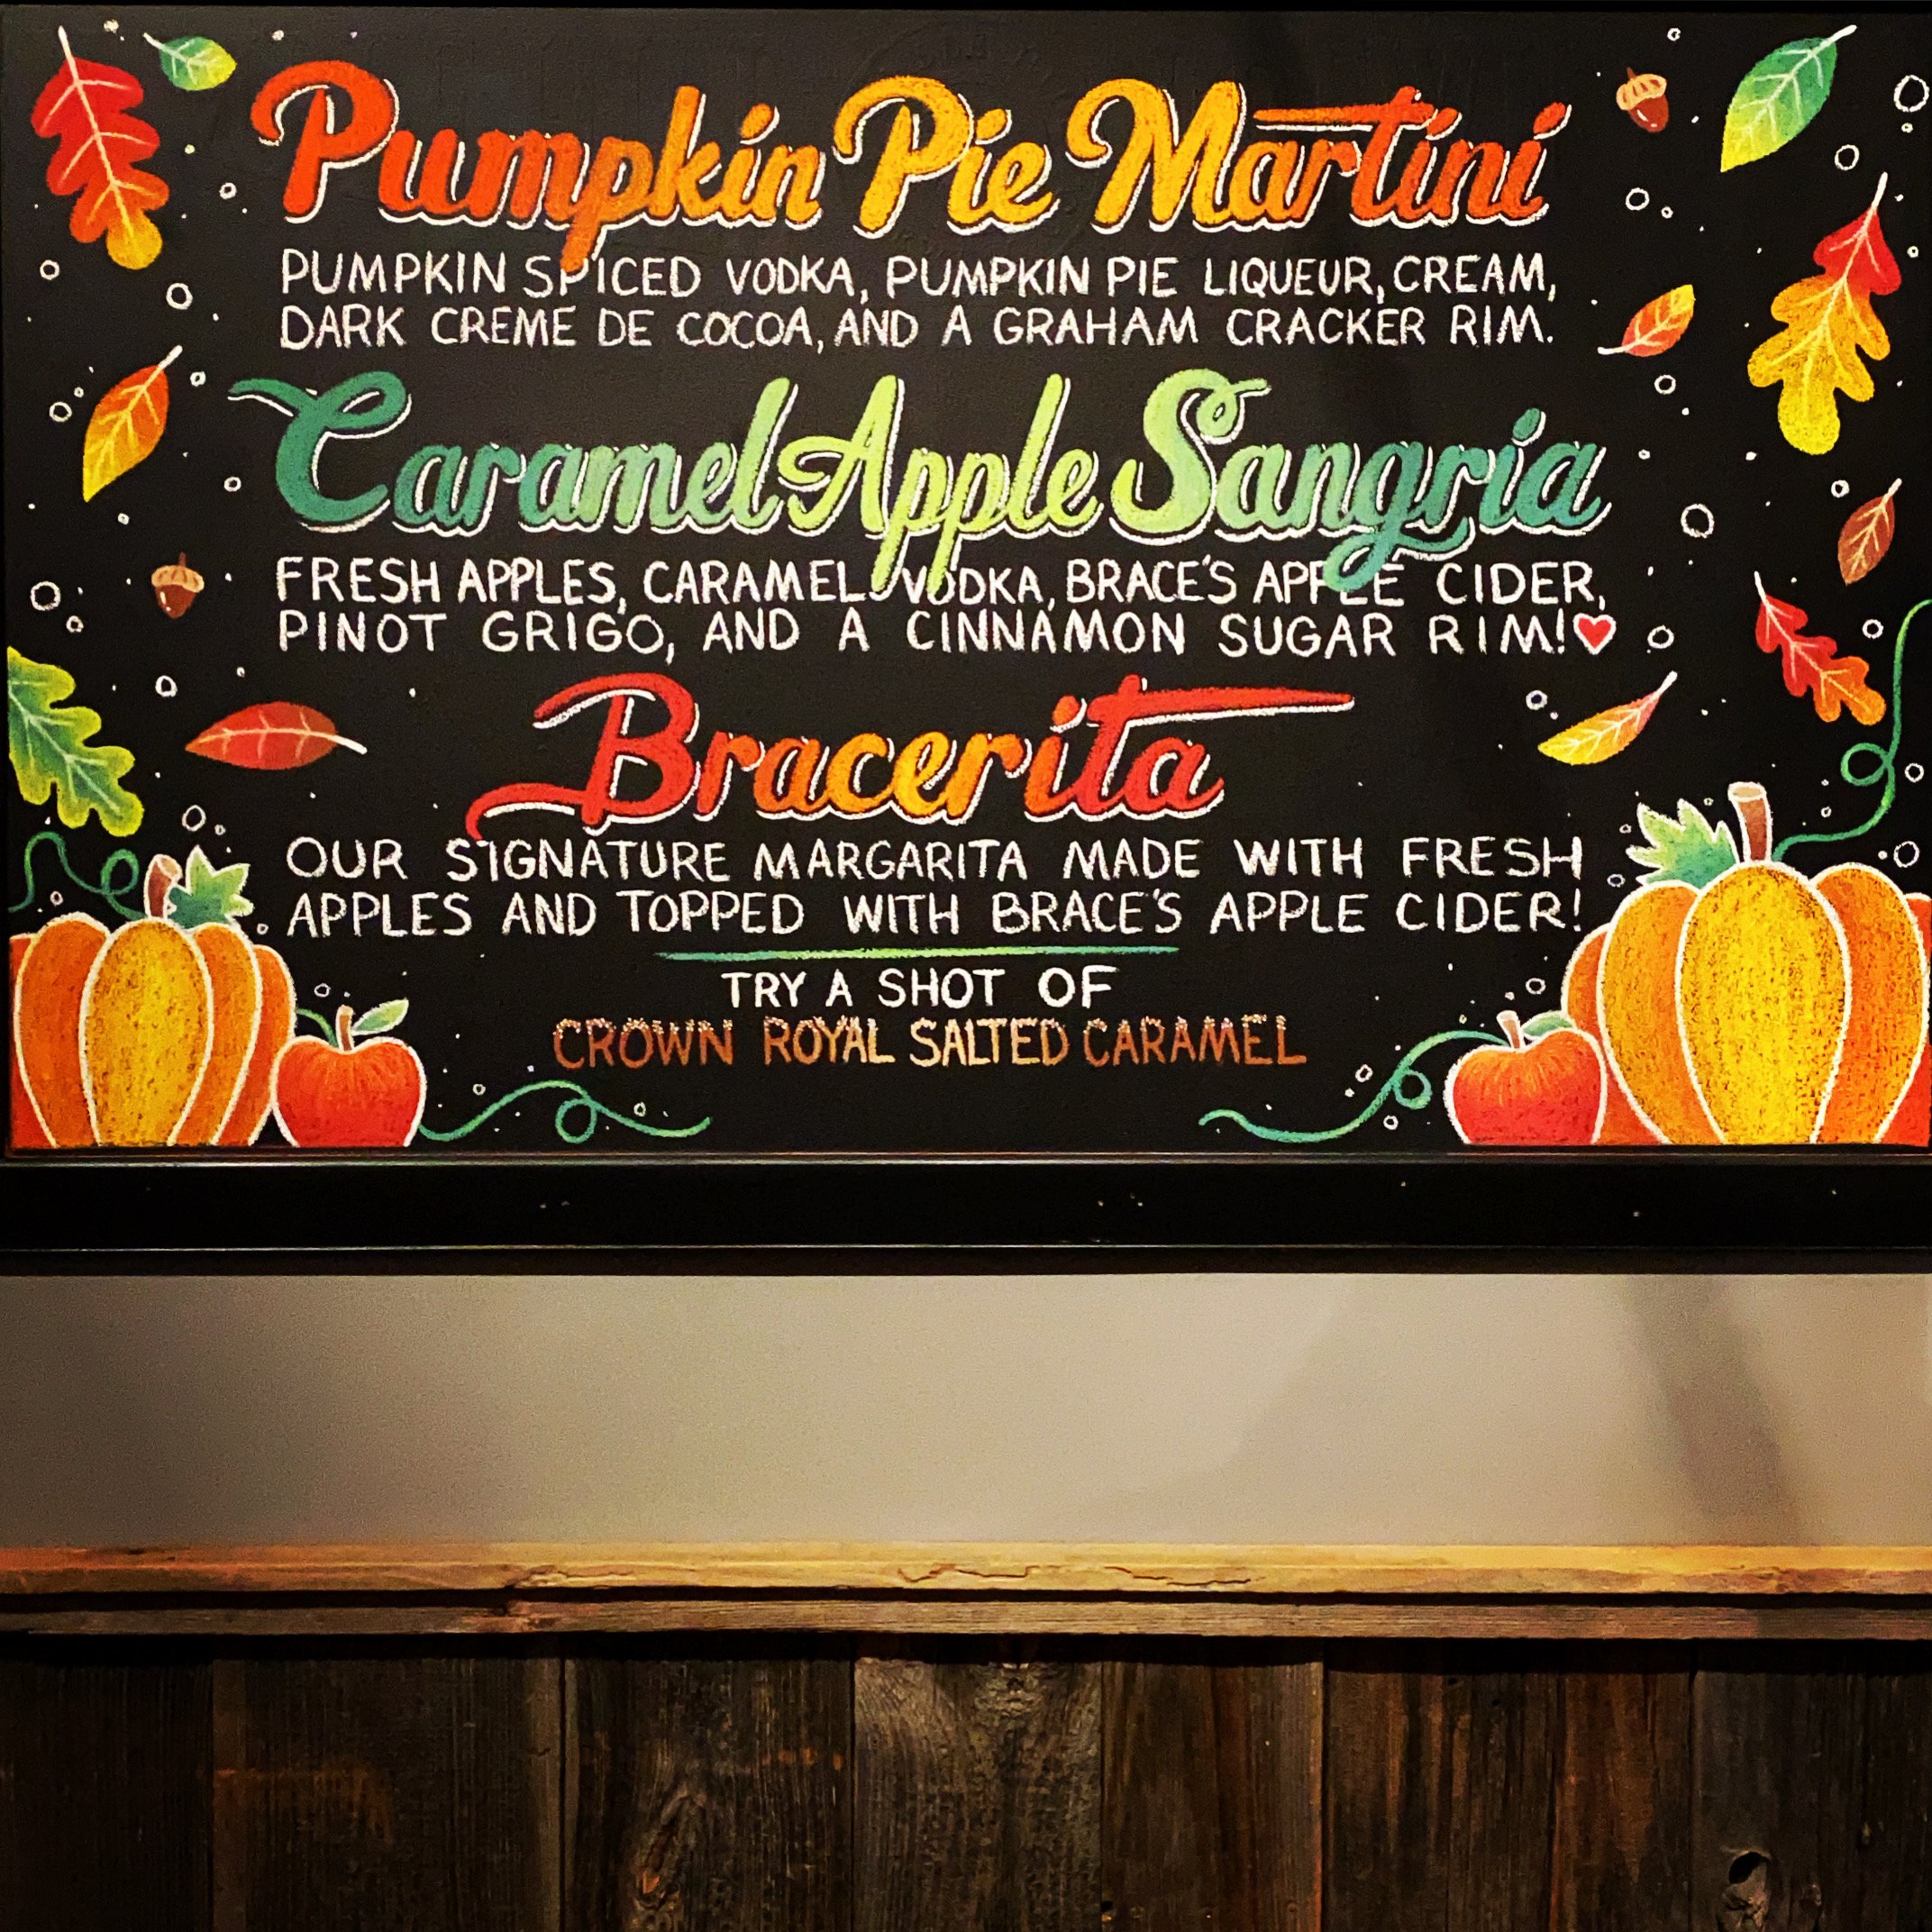 Pumpkin Pie Martini
PUMPKIN SPICED VODKA, PUMPKIN PIE LIQUEUR, CREAM,
DARK CREME DE COCOA, AND A GRAHAM CRACKER RIM.
Caramel Apple Sangria
FRESH APPLES, CARAMEL VODKA, BRACE'S APPLE CIDER,
PINOT GRIGO, AND A CINNAMON SUGAR RIM!
Bracerita
OUR SIGNATURE MARGARITA MADE WITH FRESH
APPLES AND TOPPED WITH BRACE'S APPLE CIDER!
TRY A SHOT OF
CROWN ROYAL SALTED CARAMEL